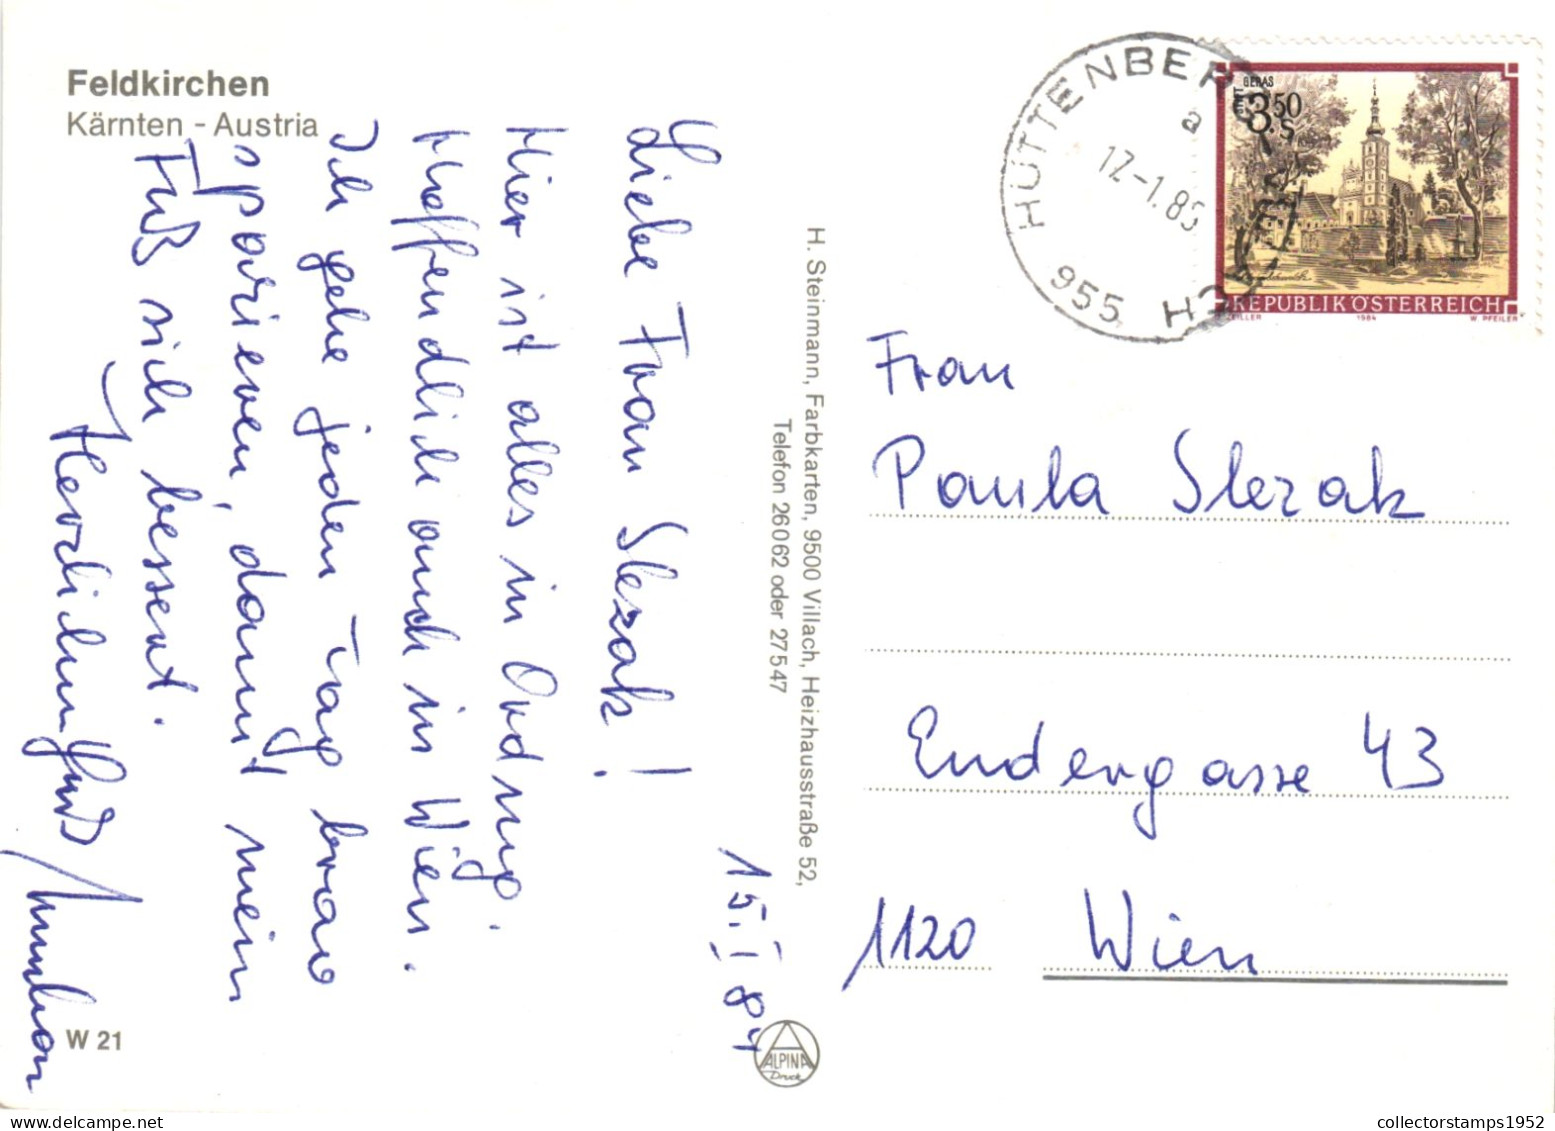 Feldkirchen
Kärnten - Austria
15. I 84
Liebe Frau Slezak!
Hier ist alles in Ordnung.
Hoffendlich auch in Wien.
Ich gehe jeden Tag brav
spazieren, damit mein
Fuß sich bessert.
Herzlichen Gruß
W 21
H. Steinmann, Farbkarten, 9500 Villach, Heizhausstraße 52,
Telefon 26062 oder 27547
ALPINA
Druck
HÜTTENBERG
a
17.-1.85
955
GERAS
S 3.50
REPUBLIK ÖSTERREICH
ZEILLER 1984 W. PFEILER
Frau
Paula Slezak
Endergasse 43
1120 Wien
collectorstamps1952